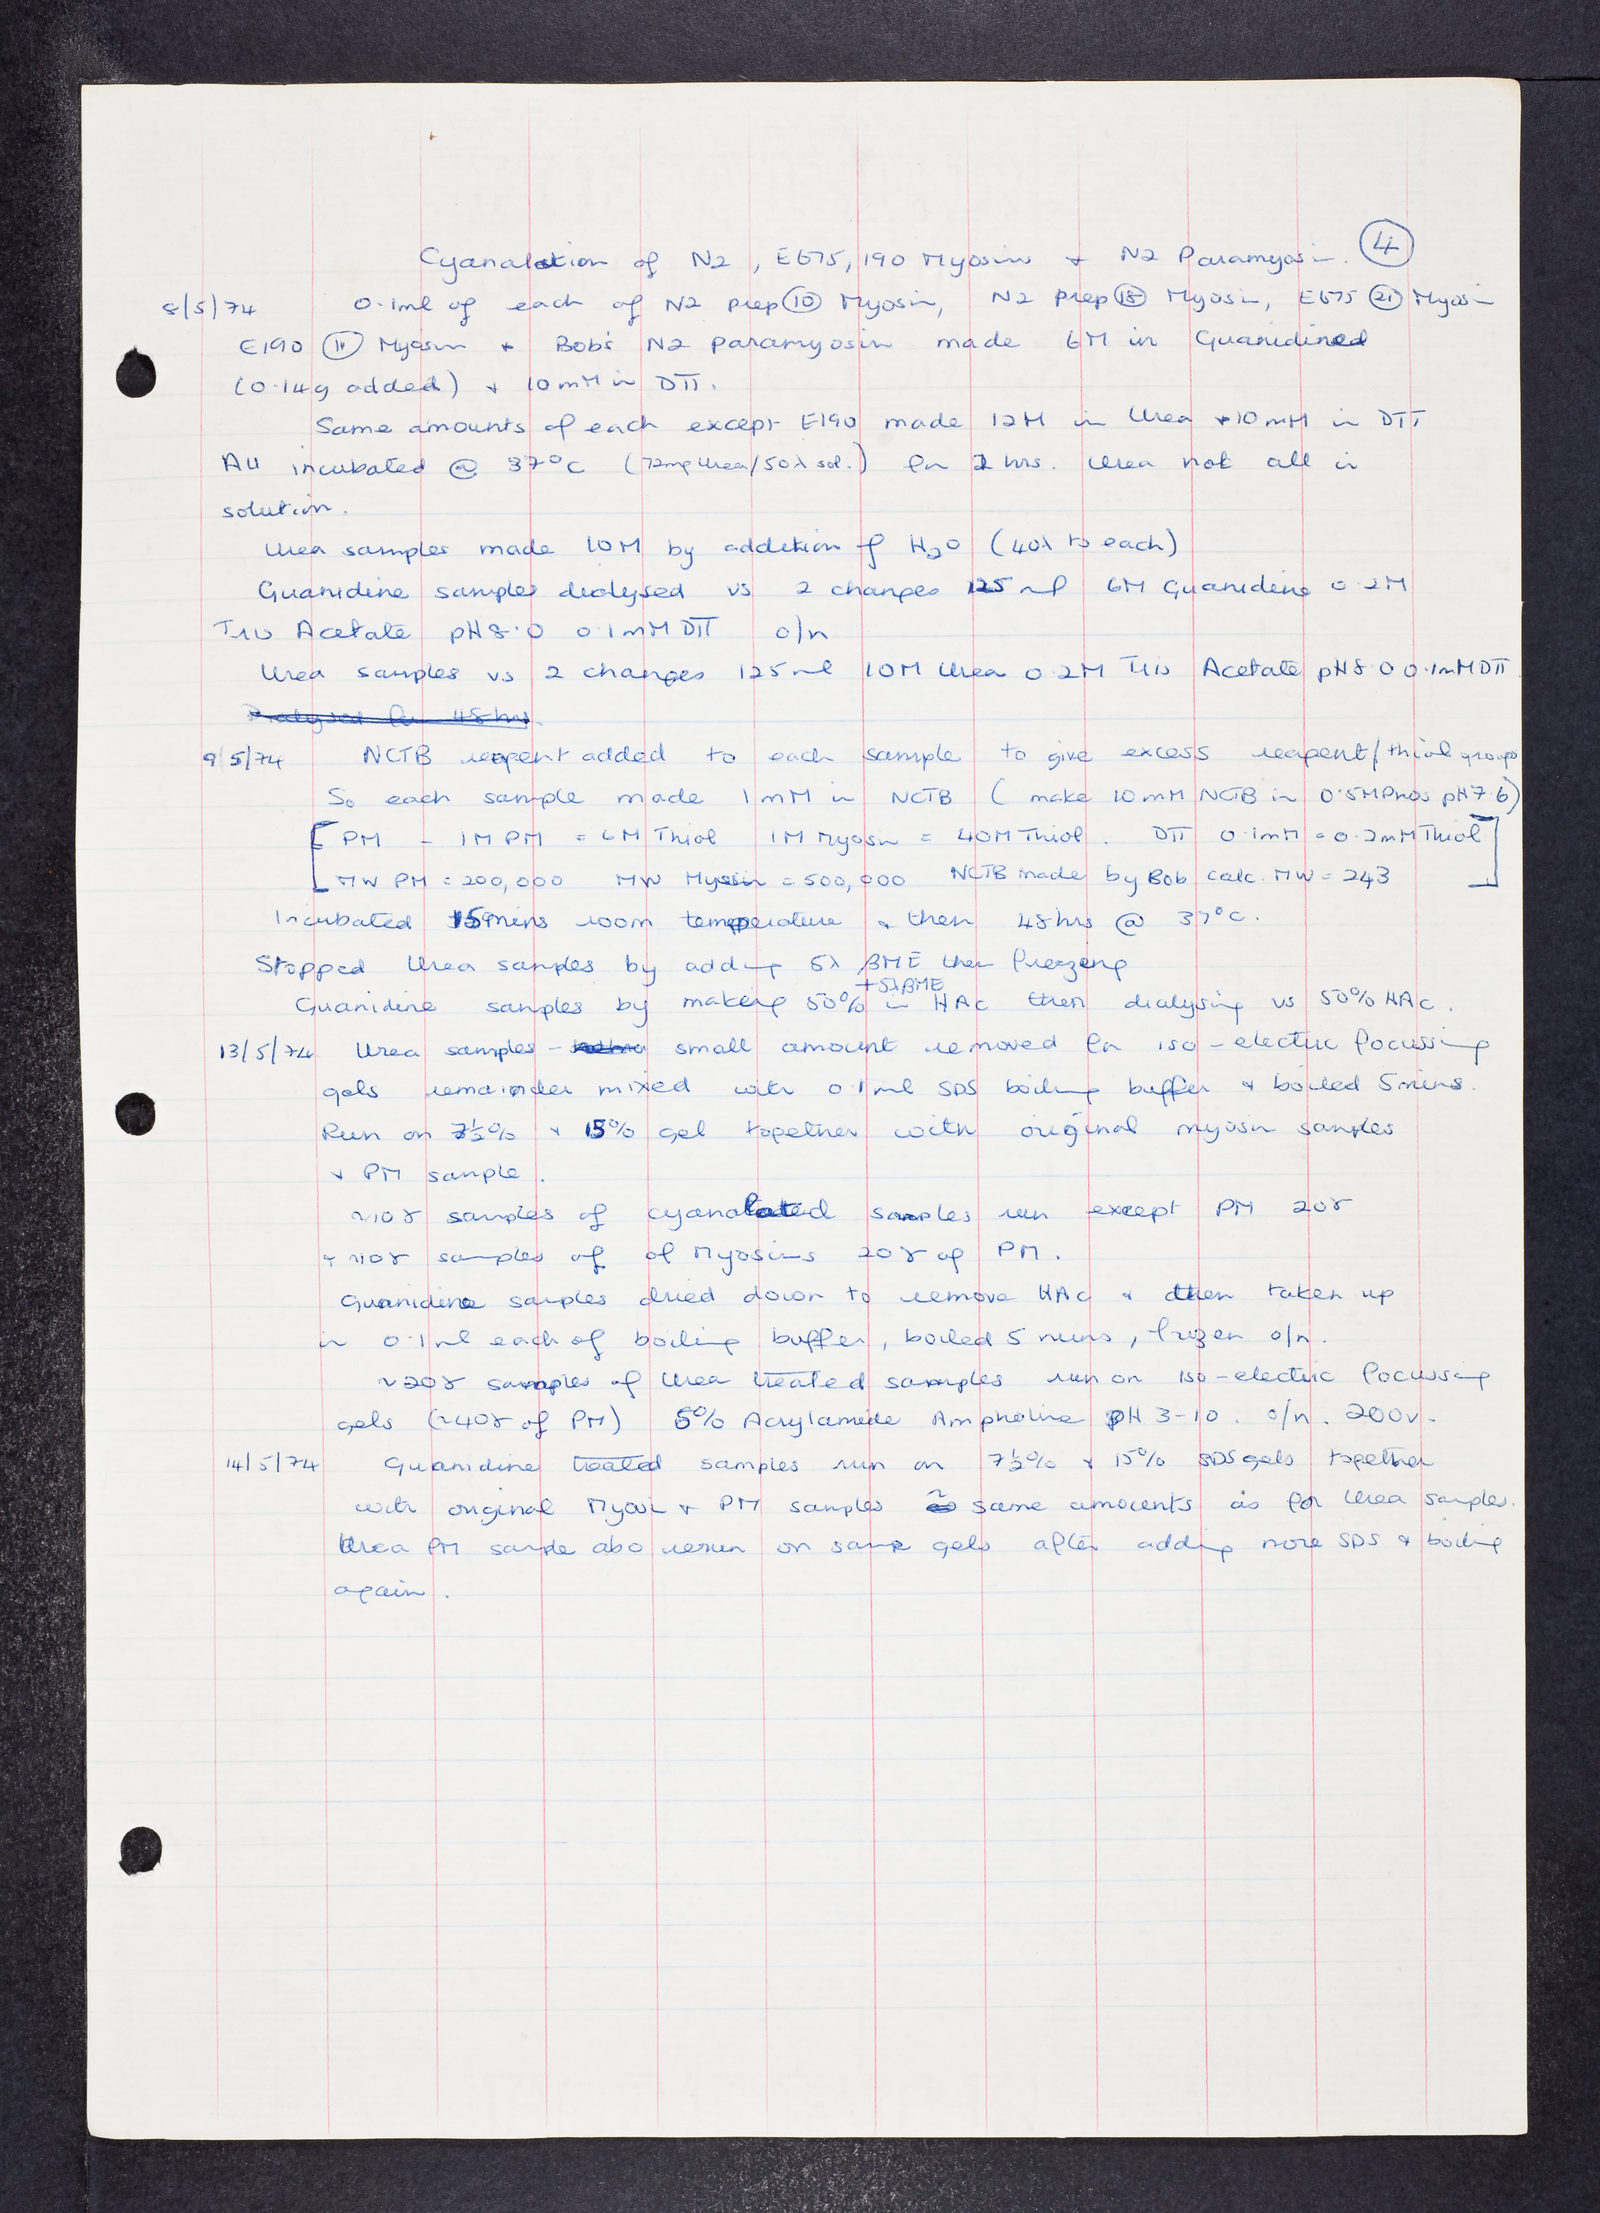 Cyanalation of N2, E675, 190 Myosins + N2 Paramyosin. 4
8/5/74 0.1ml of each of N2 prep 10 Myosin, N2 prep 18 Myosin, E675 21 Myosin
E190 11 Myosin + Bob's N2 paramyosin made 6M in Guanidined
(0.14g added) + 10mM in DTT.
Same amounts of each except E190 made 12M in Urea + 10mM in DTT
All incubated @ 37°C (72mg Urea/50λ sol.) for 2 hrs. Urea not all in
solution.
Urea samples made 10M by addition of H2O (40λ to each)
Guanidine samples dialysed vs 2 changes 125ml 6M Guanidine 0.2M
Tris Acetate pH8.0 0.1mM DTT o/n
Urea samples vs 2 changes 125ml 10M Urea 0.2M Tris Acetate pH8.0 0.1mM DTT
Dialysed for 48hrs.
9/5/74 NCTB reagent added to each sample to give excess reagent/thiol groups
So each sample made 1mM in NCTB (make 10mM NCTB in 0.5M Phos pH7.6)
[PM - 1M PM = 6M Thiol 1M Myosin = 40M Thiol. DTT 0.1mM = 0.2mM Thiol
MW PM = 200,000 MW Myosin = 500,000 NCTB made by Bob calc. MW = 243]
Incubated 15mins room temperature + then 48hrs @ 37°C.
Stopped Urea samples by adding 5λ βME then freezing
+5λβME
Guanidine samples by making 50% in HAc then dialysing vs 50% HAc.
13/5/74 Urea samples - small amount removed for iso-electric focussing
gels remainder mixed with 0.1ml SDS boiling buffer + boiled 5mins.
Run on 7½% + 15% gel together with original myosin samples
+ PM sample.
~10γ samples of cyanalated samples run except PM 20γ
+ ~10γ samples of of Myosins 20γ of PM.
Guanidine samples dried down to remove HAc + then taken up
in 0.1ml each of boiling buffer, boiled 5 mins, frozen o/n.
~20γ samples of Urea treated samples run on iso-electric focussing
gels (~40γ of PM) 5% Acrylamide Ampholine pH 3-10. o/n. 200v.
14/5/74 Guanidine treated samples run on 7½% + 15% SDS gels together
with original Myosin + PM samples ~ same amounts as for Urea samples.
Urea PM sample also rerun on same gels after adding more SDS + boiling
again.